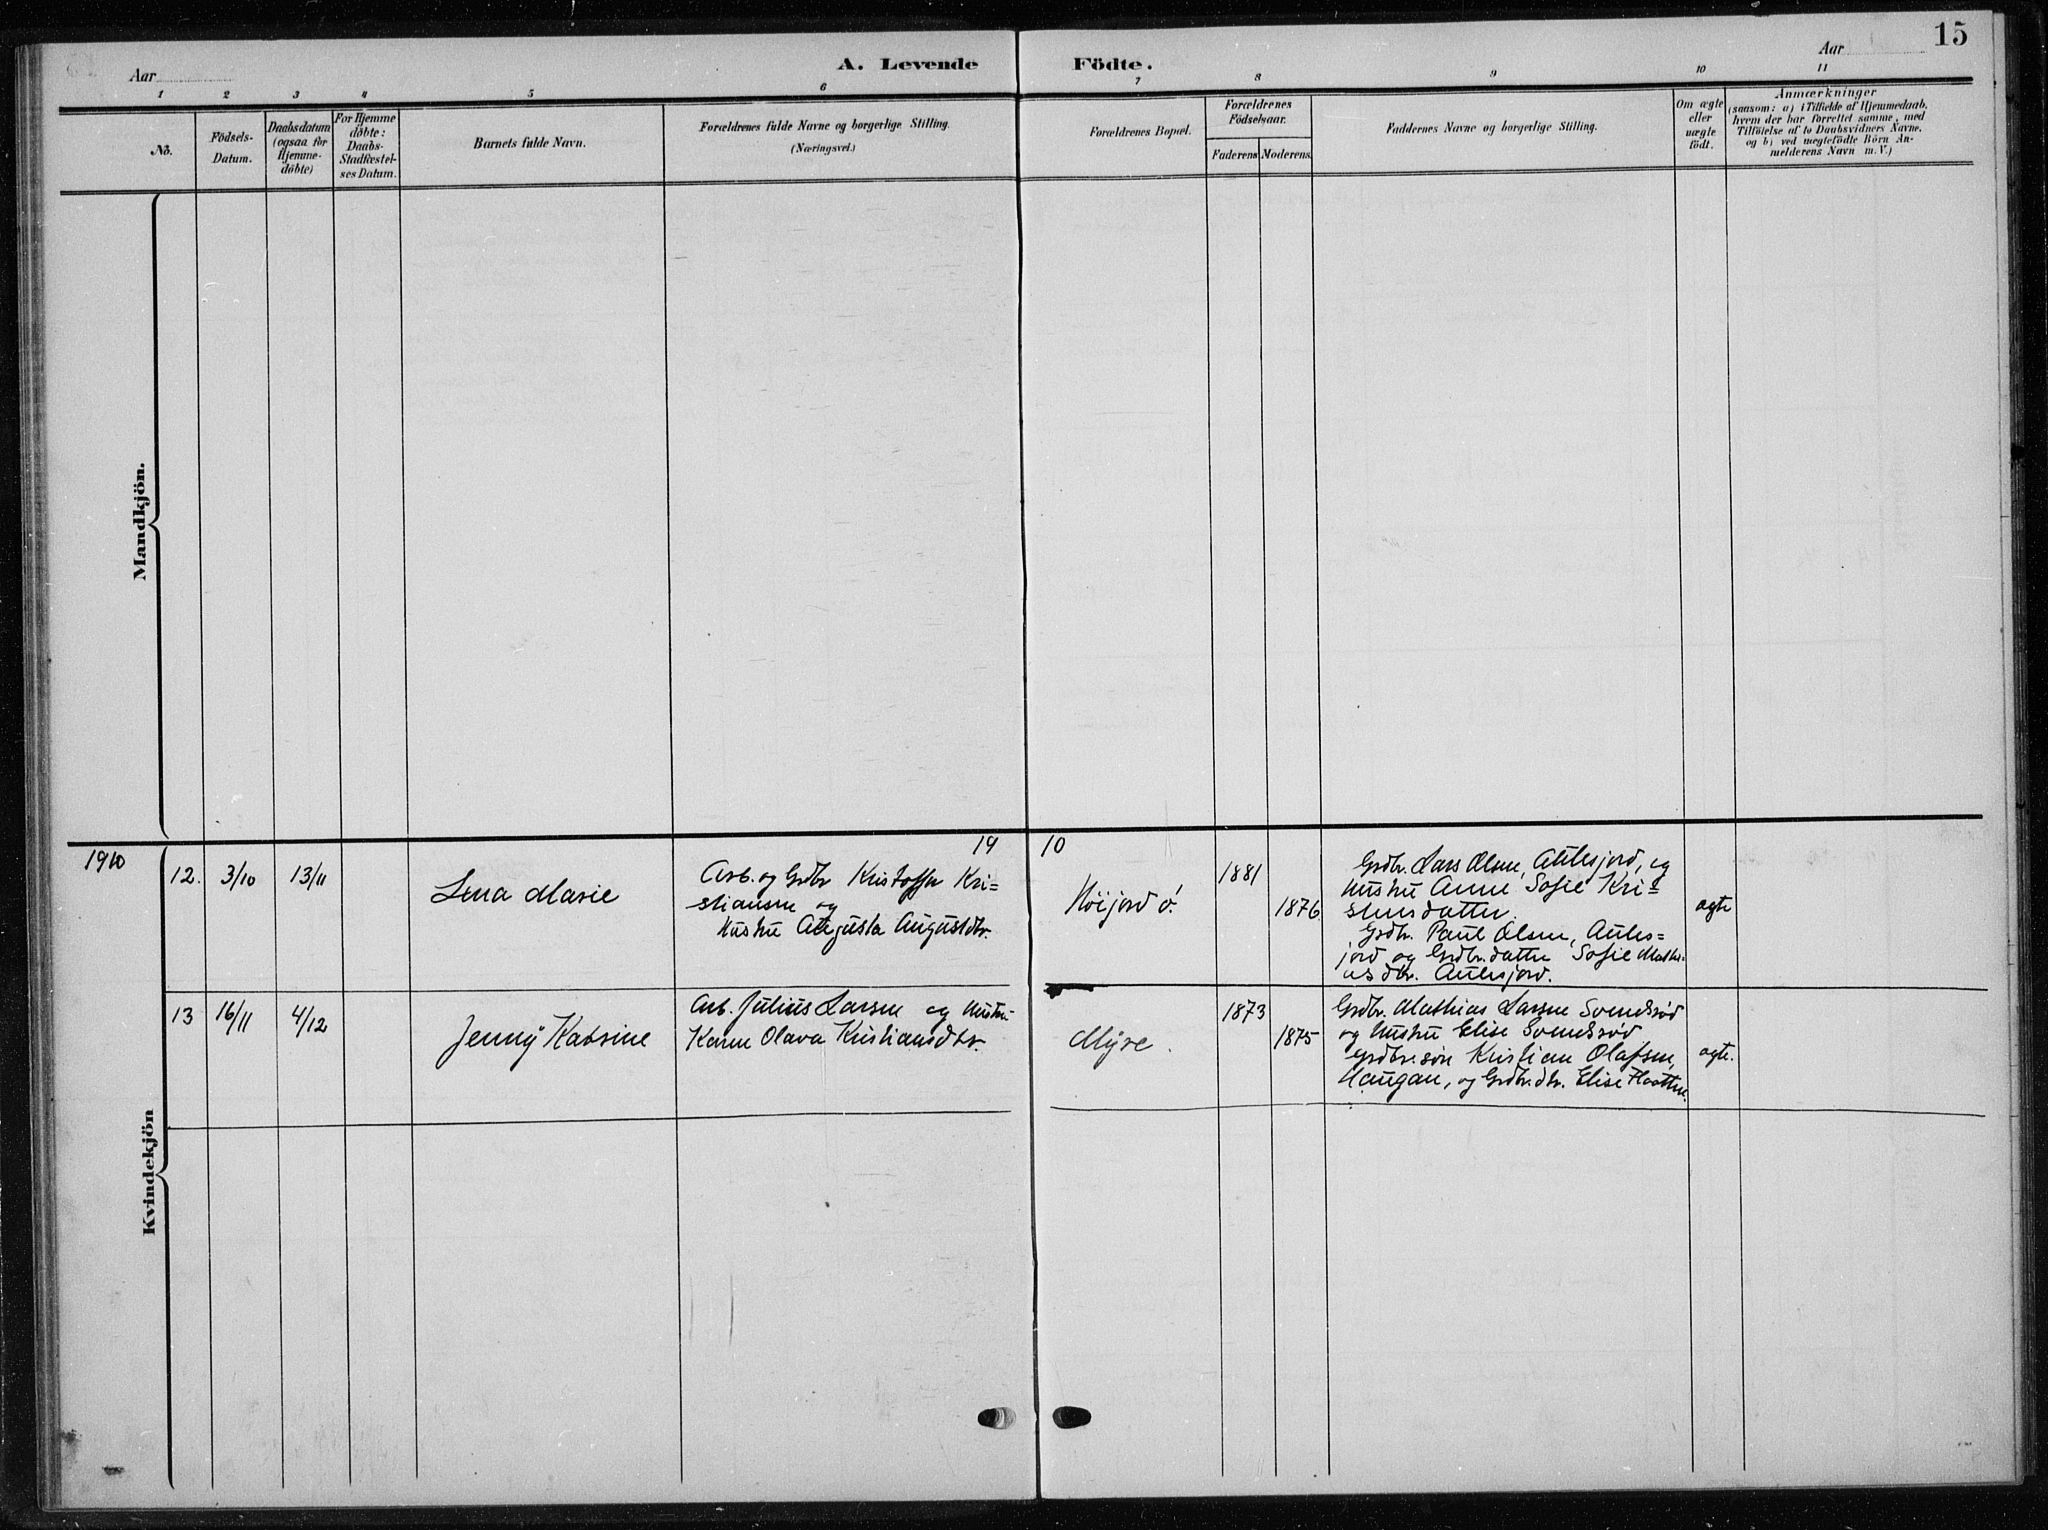 15
Aar
A. Levende
Födte.
Aar
1 2 3 4 5 6 7 8 9 10 11
No.
Födsels-
Datum.
Daabsdatum
(ogsaa for
Hjemme-
døbte)
For Hjemme
døbte:
Daabs-
Stadfæstel-
ses Datum.
Barnets fulde Navn.
Forældrenes fulde Navne og borgerlige Stilling.
(Næringsvei.)
Forældrenes Bopæl.
Forældrenes
Födselsaar.
Faderens. Moderens.
Faddernes Navne og borgerlige Stilling.
Om ægte
eller
uægte
født.
Anmærkninger
(saasom: a) i Tilfælde af Hjemmedaab,
hvem der har forrettet samme, med
Tilføielse af to Daabsvidners Navne.
og b) ved uægtefødte Börn An-
melderens Navn m. V.)
Mandkjön.
Kvindekjön
1910
19 10
12. 3/10 13/11
Lena Marie
Arb. og Grdbr Kristoffer Kri=
stiansen og
Hustru Augusta Augustdtr.
Höijord ø.
1881
1876
Grdbr. Lars Olsen, Aulesjord, og
Hustru Anne Sofie Kri=
stensdatter.
Grdbr. Paul Olsen, Aules=
jord og Grdbr.datter Sofie Mathi-
asdtr. Aulesjord.
ægte
13 16/11 4/12
Jenny Katrine
Arb. Julius Larsen og Hustru
Karen Olava Kristiansdtr.
Myre.
1873
1875
Grdbr. Mathias Larsen Svendsrød
og Hustru Elise Svendsrød
Grdbr.søn Kristian Olafsen,
Haugan, og Grdbr.dtr. Elise
ægte.